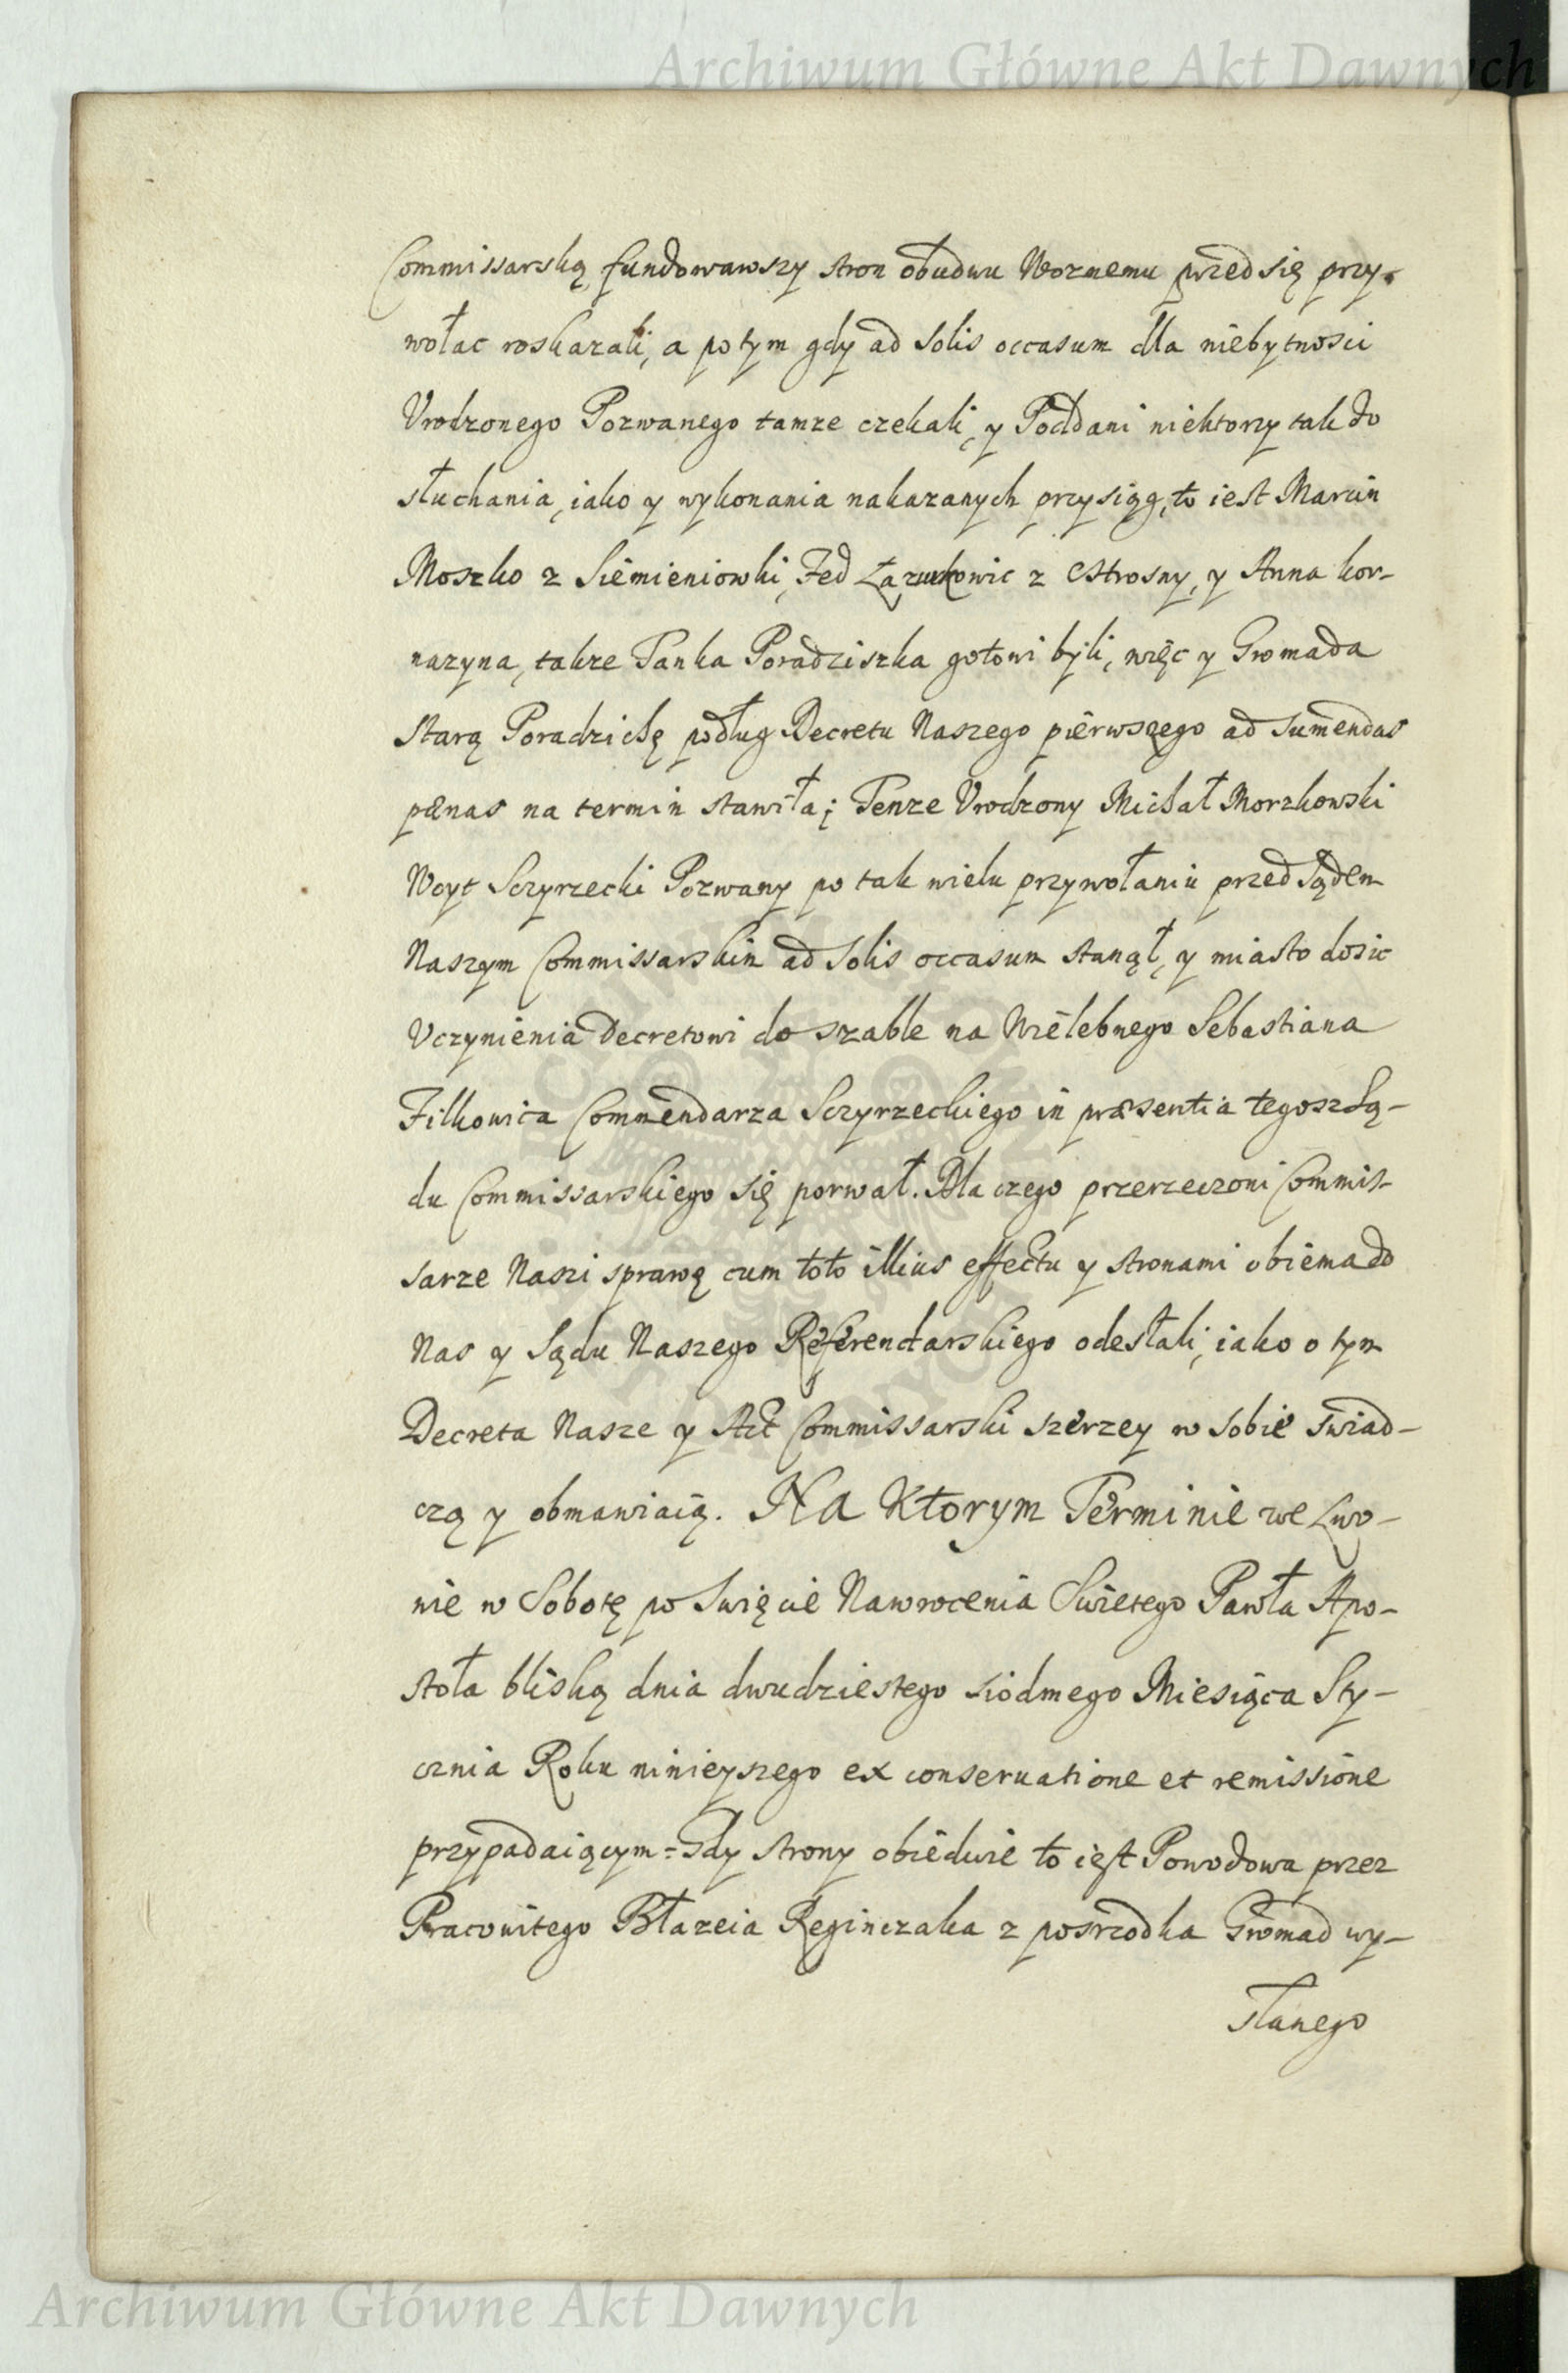 Archiwum Główne Akt Dawnych
Commissarską fundowawszy stron obudwu Woznemu przed się przy-
wołac roskazali, a potym gdy ad solis occasum dla niebytnosci
Vrodzonego Pozwanego tamze czekali, y Poddani niektorzy tak do
słuchania, iako y wykonania nakazanych przysiąg, to iest Marcin
Moszko z Siemieniowki, Fed Łazurkowic z Ostrosny, y Anna kor-
nazyna, takze Panka Poradziszka gotowi byli, więc y Gromada
starą Poradzichę podług Decretu Naszego pierwszego ad sumendas
pænas na termin stawiła; Tenze Vrodzony Michał Morzkowski
Woyt Sczyrzecki Pozwany po tak wielu przywołaniu przed Sądem
Naszym Commissarskim ad solis occasum stanął, y miasto dosic
Vczynienia Decretowi do szable na Wielebnego Sebastiana
Filkowica Commendarza Sczyrzeckiego in præsentia tegosz Są-
du Commissarskiego się porwał. Dla czego przerzeczoni Commis-
sarze Naszi sprawę cum toto illius effectu y stronami obiema do
Nas y Sądu Naszego Referendarskiego odesłali, iako o tym
Decreta Nasze y Act Commissarski szerzey w sobie swiad-
czą y obmawiaią. Na Ktorym Terminie we Lwo-
wie w Sobotę po Swięcie Nawrocenia Swietego Pawła Apo-
stoła bliską dnia dwudziestego siodmego Miesiąca Sty-
cznia Roku ninieyszego ex conservatione et remissione
przypadaiącym = Gdy strony obiedwie to iest Powodowa przez
Pracowitego Błazeia Reginczaka z posrzodka Gromad wy-
słanego
Archiwum Główne Akt Dawnych